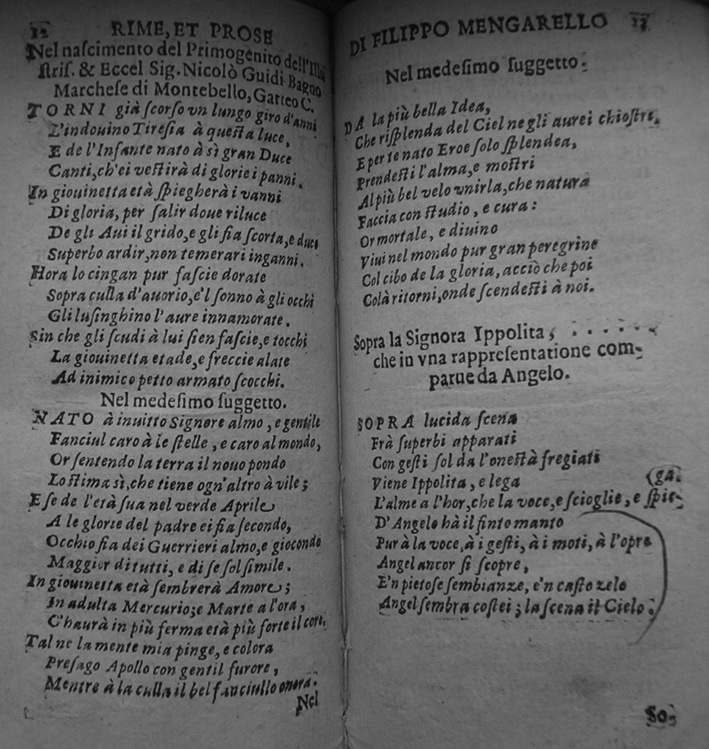 12 RIME, ET PROSE
Nel naſcimento del Primogenito dell'Illu
ſtriſ. & Eccel Sig. Nicolò Guidi Bagno
Marcheſe di Montebello, Gatteo C.
TORNI già ſcorſo vn lungo giro d'anni
L'indouino Tireſia à queſta luce,
E de l'Infante nato à sì gran Duce
Canti, ch'ei veſtirà di glorie i panni.
In giouinetta età ſpiegherà i vanni
Di gloria, per ſalir doue riluce
De gli Aui il grido, e gli fia ſcorta, e duce
Superbo ardir, non temerari inganni.
Hora lo cingan pur faſcie dorate
Sopra culla d'auorio, e'l ſonno à gli occhi
Gli luſinghino l'aure innamorate.
Sin che gli ſcudi à lui ſien faſcie, e tocchi
La giouinetta etade, e freccie alate
Ad inimico petto armato ſcocchi.
Nel medeſimo ſuggetto.
NATO à inuitto Signore almo, e gentile
Fanciul caro à le ſtelle, e caro al mondo,
Or ſentendo la terra il nouo pondo
Lo ſtima sì, che tiene ogn'altro à vile;
E ſe de l'età ſua nel verde Aprile
A le glorie del padre ei fia ſecondo,
Occhio fia dei Guerrieri almo, e giocondo
Maggior di tutti, e di ſe ſol ſimile.
In giouinetta età ſembrerà Amore;
In adulta Mercurio; e Marte a l'ora,
C'haurà in più ferma età più forte il core.
Tal ne la mente mia pinge, e colora
Preſago Apollo con gentil furore,
Mentre à la culla il bel fanciullo onora.
Nel
DI FILIPPO MENGARELLO 13
Nel medeſimo ſuggetto.
DA la più bella Idea,
Che riſplenda del Ciel ne gli aurei chioſtri,
E per te nato Eroe ſolo ſplendea,
Prendeſti l'alma, e moſtri
Al più bel velo vnirla, che natura
Faccia con ſtudio, e cura:
Or mortale, e diuino
Viui nel mondo pur gran peregrine
Col cibo de la gloria, acciò che poi
Colà ritorni, onde ſcendeſti à noi.
Sopra la Signora Ippolita, . . . . . .
che in vna rappreſentatione com-
parue da Angelo.
SOPRA lucida ſcena
Frà ſuperbi apparati
Con geſti ſol da l'oneſtà fregiati
Viene Ippolita, e lega (ga.
L'alme a l'hor, che la voce, e ſcioglie, e ſpie-
D'Angelo hà il finto manto
Pur à la voce, à i geſti, à i moti, à l'opre
Angel ancor ſi ſcopre,
E'n pietoſe ſembianze, e'n caſto zelo
Angel ſembra coſtei; la ſcena il Cielo.
So-